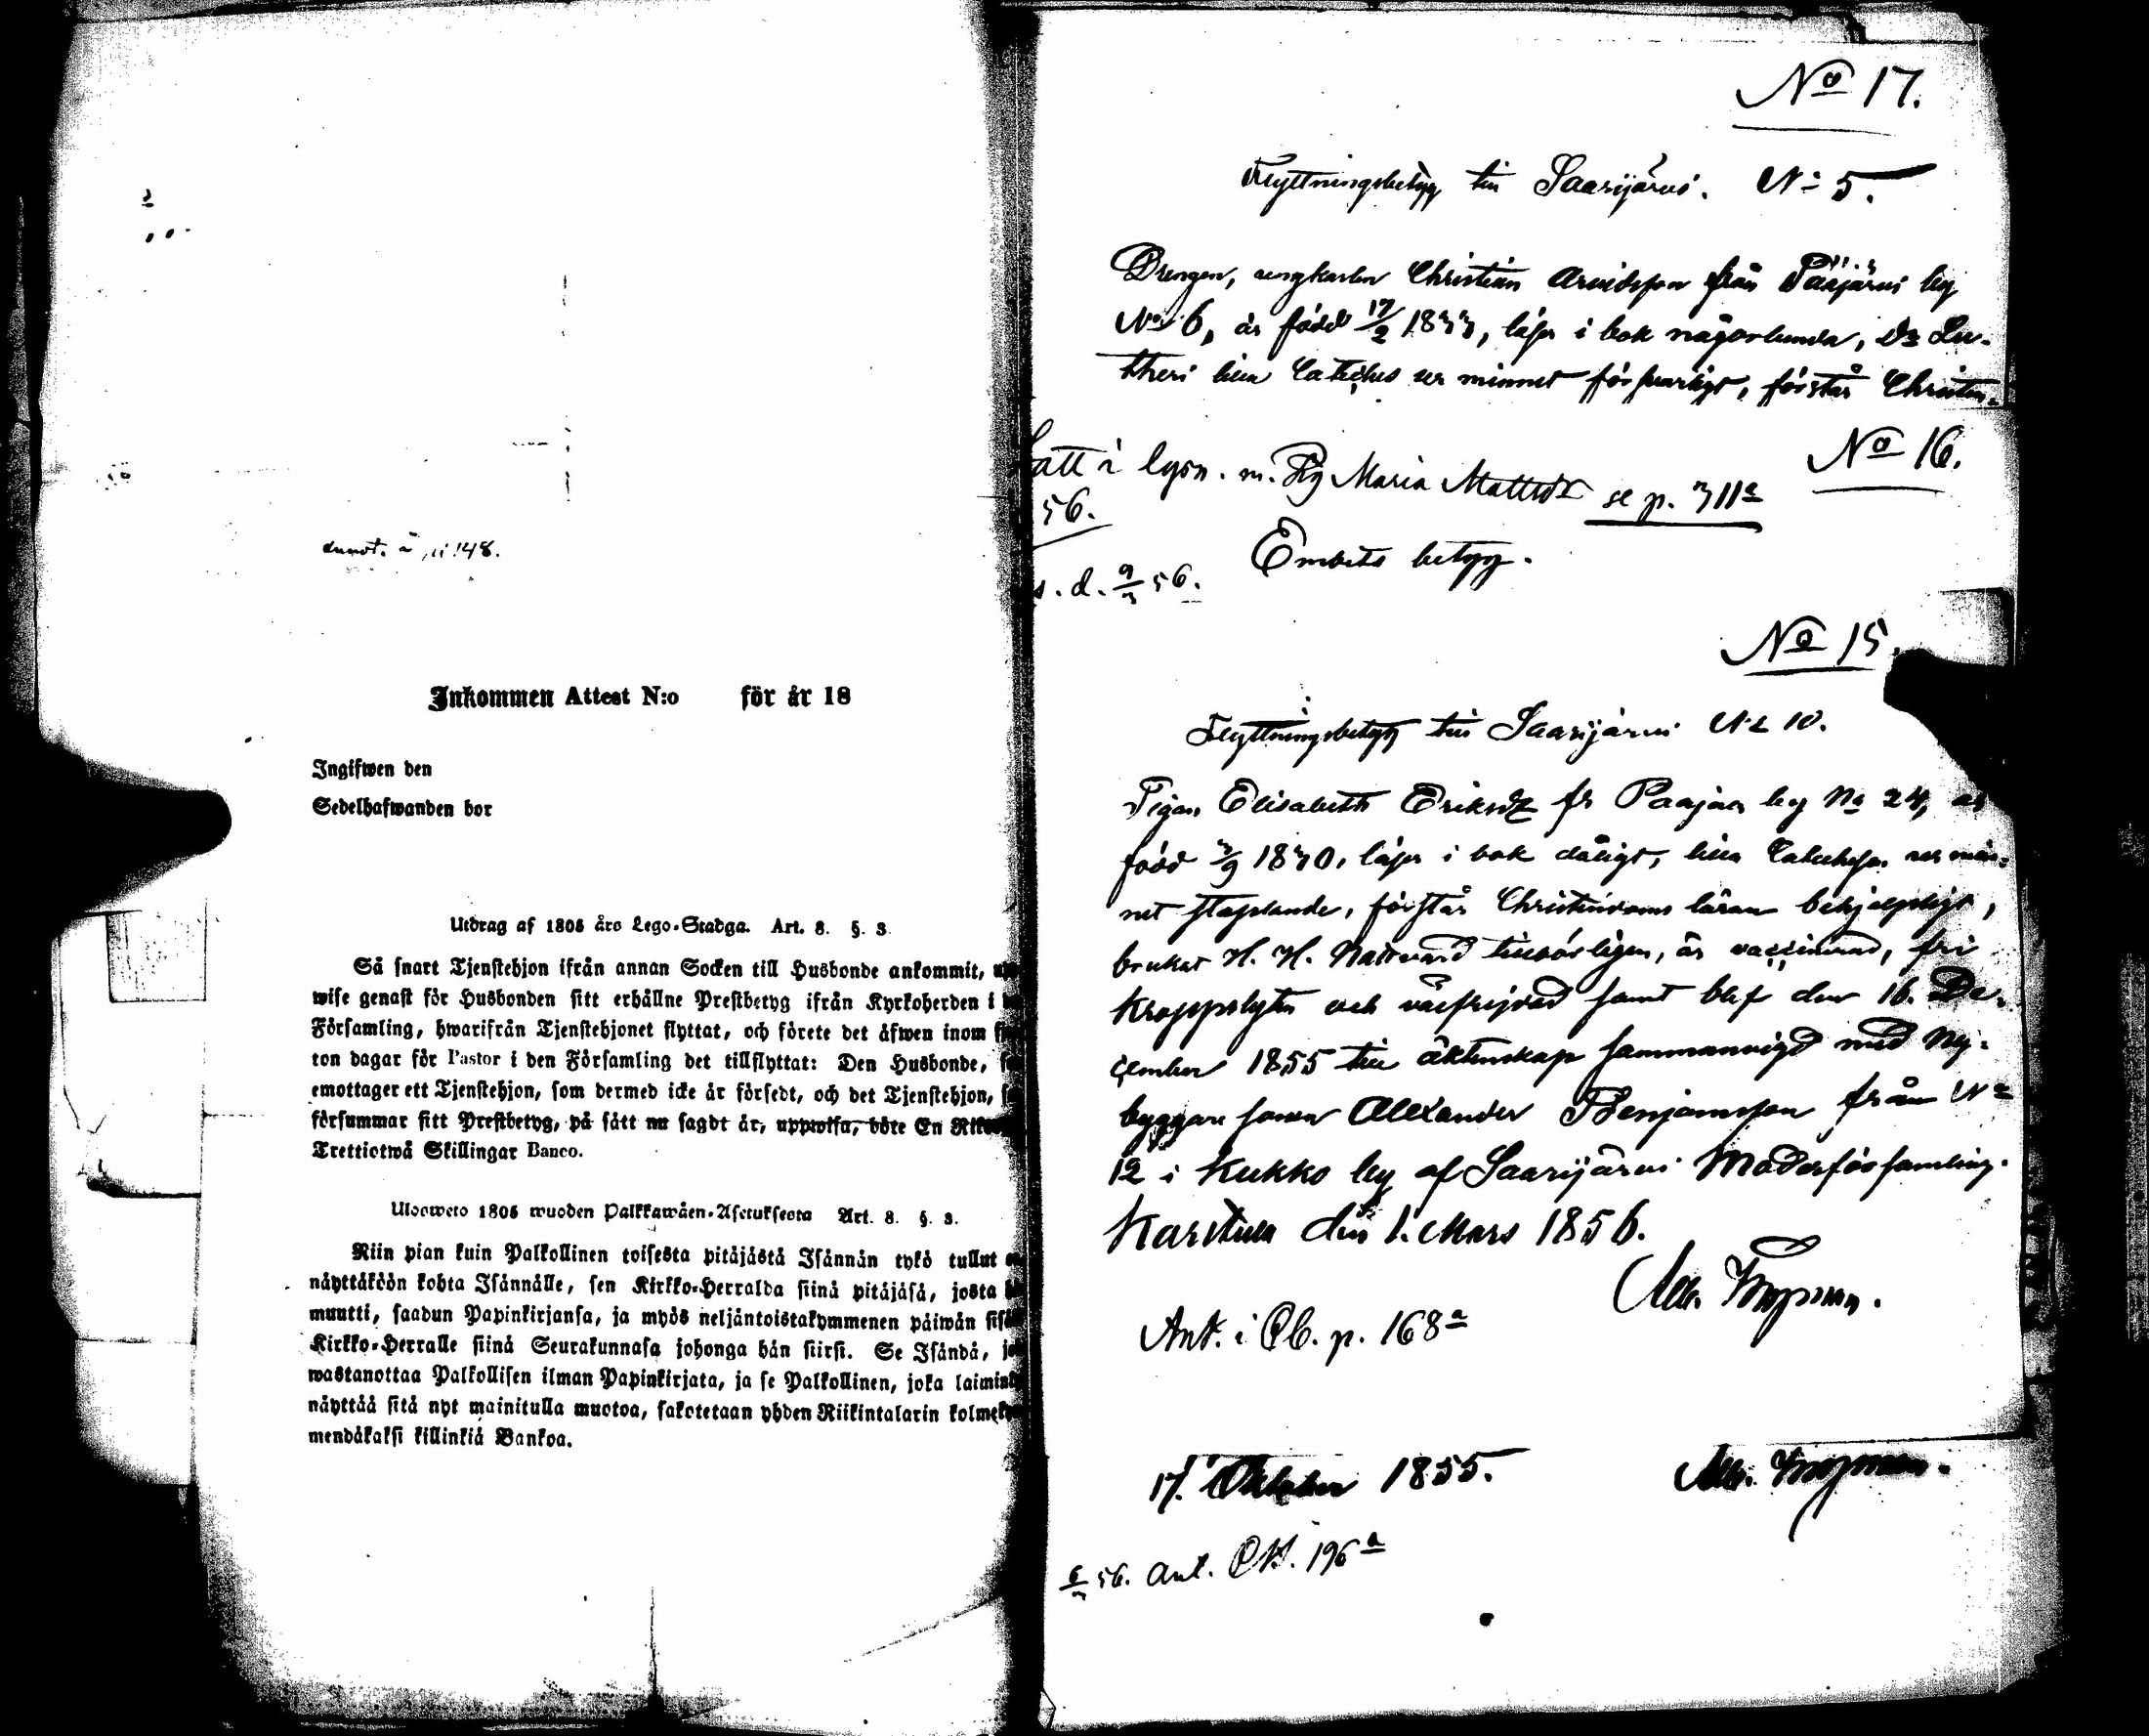 148.
Inkommen Attest N:o för år 18
Ingifwen den
Sedelhafwanden bor
Utdrag af 1805 års Lego-Stadga. Art. 8. §. 3.
Så snart Tjenstehjon ifrån annan Socken till Husbonde ankommit,
wise genast för Husbonden sitt erhållne Prestbetyg ifrån Kyrkoherden i
Församling, hwarifrån Tjenstehjonet flyttat, och förete det äfwen inom
ton dagar för Pastor i den Församling det tillflyttat: Den Husbonde,
emottager ett Tjenstehjon, som dermed icke är försedt, och det Tjenstehjon,
försummar sitt Prestbetyg, på sätt nu sagdt är, uppwisa, böte En
Trettiotwå Skillingar Banco.
Ulosweto 1805 wuoden Palkkawäen-Asetuksesta Art. 8. §. 3.
Niin pian kuin Palkollinen toisesta pitäjästä Isännän tykö tullut
näyttäköön kohta Isännälle, sen Kirkko-Herralda siinä pitäjäsä, josta
muutti, saadun Papinkirjansa, ja myös neljäntoistakymmenen päiwän
Kirkko-Herralle siinä Seurakunnasa johonga hän siirsi. Se Isändä,
wastanottaa Palkollisen ilman Papinkirjata, ja se Palkollinen, joka
näyttää sitä nyt mainitulla muotoa, sakotetaan yhden Riikintalarin
mendäkaksi killinkiä Bankoa.
No 17.
Flyttningsbetyg till Saarijärvi. No 5.
Drengen, ungkarlen Christian Arvidsson från Pääjärvi by
No 6, är född 17/2 1833, läser i bok någorlunda, Dr Lu-
theri lilla Catches ur minnet försvarligt, förstår Christen-
No 16.
att i lysn. m. Pig Maria Mattsdr se p. 311a
56.
Embets betyg.
s. d. 9/3 56.
No 15.
Flyttningsbetyg till Saarijärvi No 10.
Pigan Elisabeth Eriksdr fr Paajaa by No 24, är
född 3/9 1830, läser i bok dåligt, lilla Catechesen ur min-
net staplande, förstår Christendoms läran behjelpligt,
brukat H. H. Nattvard tillbörligen, är vaccinerad, fri
kroppslyten och välfrejdad samt blef den 16. De-
cember 1855 till äktenskap sammanvigd med Ny-
byggare sonen Alexander Benjamsson från No
12 i Kukko by af Saarijärvi Moderförsamling.
Karstula den 1. Mars 1856.
Ant. i Cb. p. 168a
17. Oktober 1855.
6/3 56. Ant. 196a